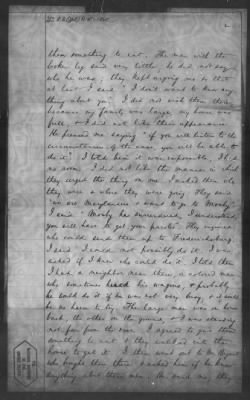 them something to eat. The man with the
broken leg said very little; he did not say
who he was; they kept urging me so that
at last I said "I don't want to know any
thing about you". I did not wish them there
because my family was large, my house was
full, & I did not like their appearance.
He pressed me saying "if you will listen to the
circumstances of the case, you will be able to
do it." I told him it was impossible, I had
no room. I did not like the manner in which
they urged the thing on me. I asked them who
they were & where they were going. They said
"we are Marylanders & want to go to Mosby."
I said "Mosby has surrendered, I understand,
you will have to get your paroles". They inquired
who could send them up to Fredericksburg.
I said I could not possibly do it. I was
asked if I knew who could do it. I told them
I had a neighbor near there, a colored man
who sometimes hired his wagons, & probably
he would do it if he was not very busy, & it would
be no harm to try. The large man was on horse
back, the other on the ground, & I was standing
not far from the door. I agreed to give them
something to eat & they walked into the
house to get it. I then went out to Mr. Bryant
who brought them there & asked him if he knew
anything about these men. He said no, they